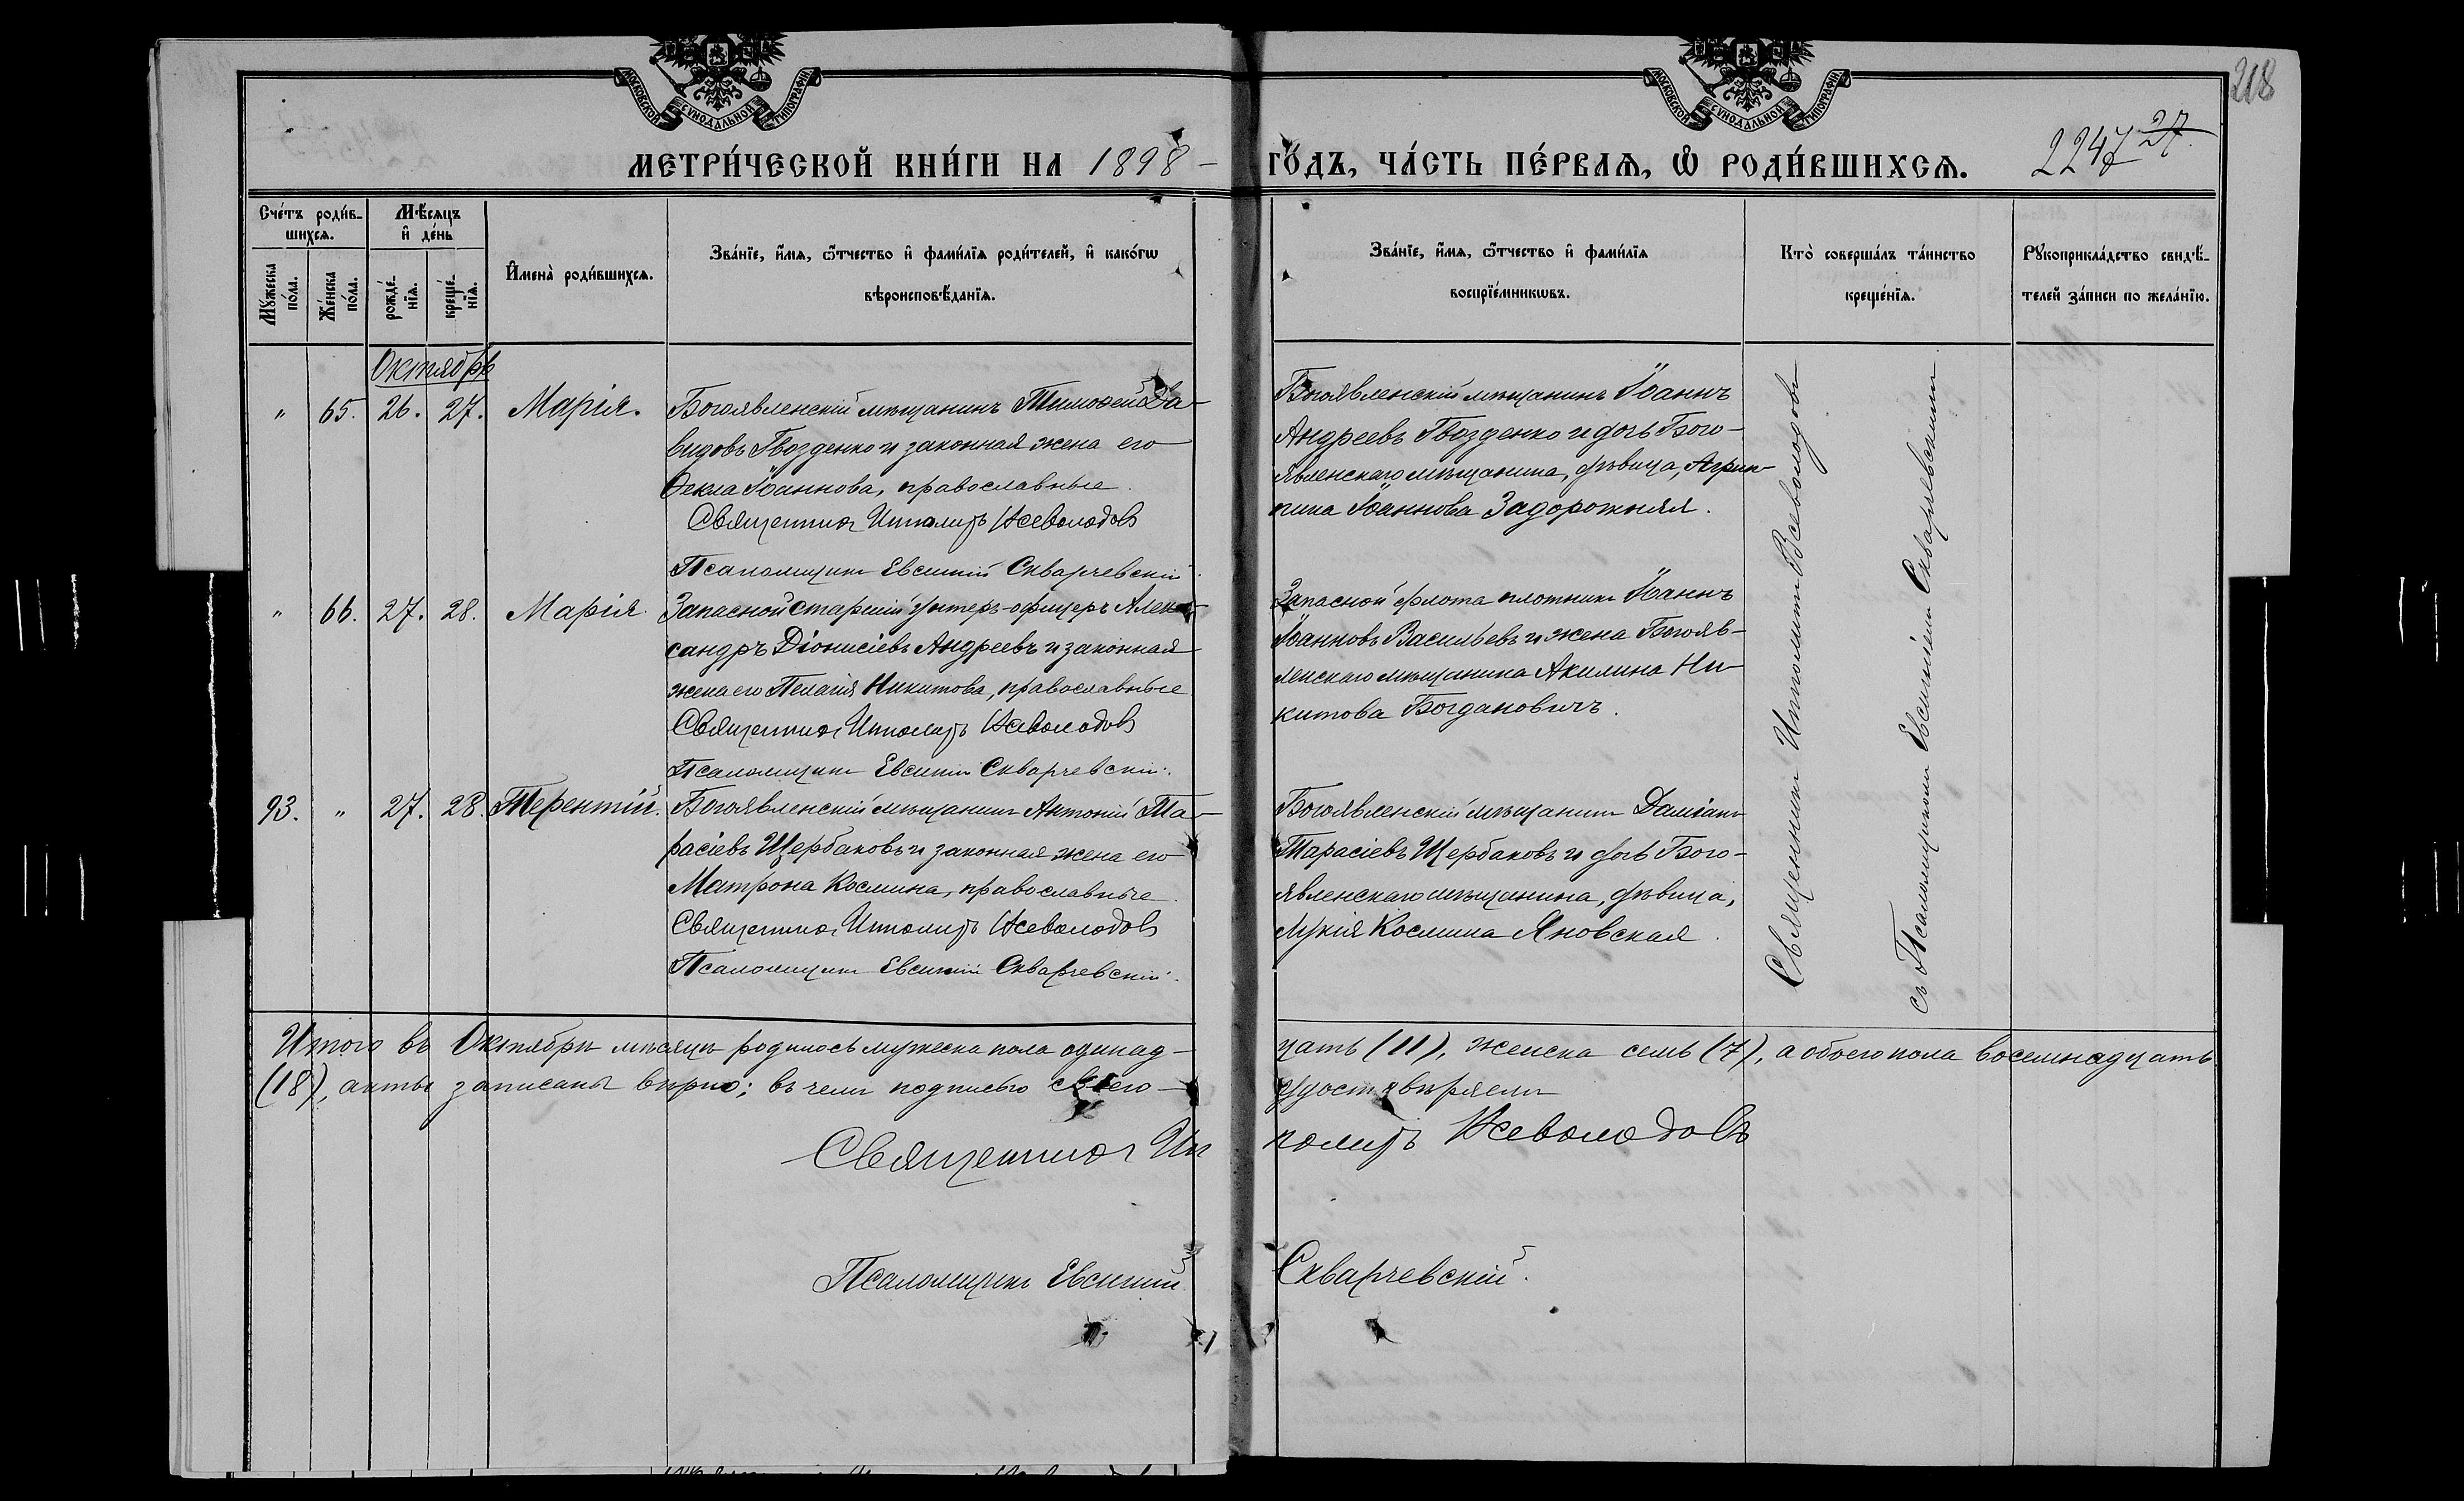 МОСКОВСКОЙ СУНОДАЛЬНОЙ ТИПОГРАФІИ
МОСКОВСКОЙ СУНОДАЛЬНОЙ ТИПОГРАФІИ
218
27
2247
МЕТРИ́ЧЕСКОЙ КНИ́ГИ НА 1898 ГО́ДЪ, ЧА́СТЬ ПЕ́РВАѦ, Ѡ РОДИ́ВШИХСѦ.
Сче́тъ роди́в-
шихсѧ.
Мꙋжеска по́ла.
Же́нска по́ла.
Мѣ́сѧцъ
и҆ де́нь
рожде́-
нїѧ.
креще́-
нїѧ.
И҆мена̀ роди́вшихсѧ.
Зва́нїе, и҆́мѧ, ѻ҆́тчество и҆ фами́лїѧ роди́телей, и҆ како́гѡ
вѣроисповѣ́данїѧ.
Зва́нїе, и҆́мѧ, ѻ҆́тчество и҆ фами́лїѧ
воспрїе́мникѡвъ.
Кто̀ соверша́лъ та́инство
креще́нїѧ.
Рꙋкоприкла́дство свидѣ́-
телей за́писи по жела́нїю.
Октябрь
" 65. 26. 27. Марія. Богоявленскій мѣщанинъ Тимоѳей Да-
видовъ Гвозденко и законная жена его
Ѳекла Іоаннова, православные.
Священникъ Ипполитъ Всеволодовъ
Псаломщикъ Евсигній Скварчевскій.
Богоявленскій мѣщанинъ Іоаннъ
Андреевъ Гвозденко и дочь Бого-
явленскаго мѣщанина, дѣвица, Агрип-
пина Іоаннова Задорожняя.
" 66. 27. 28. Марія. Запасной старшій унтеръ-офицеръ Алек-
сандръ Діонисіевъ Андреевъ и законная
жена его Пелагія Никитова, православные
Священникъ Ипполитъ Всеволодовъ
Псаломщикъ Евсигній Скварчевскій.
Запасной флота плотникъ Іоаннъ
Іоанновъ Васильевъ и жена Богояв-
ленскаго мѣщанина Акилина Ни-
китова Богдановичъ.
93. " 27. 28. Терентій. Богоявленскій мѣщанинъ Антоній Та-
расіевъ Щербаковъ и законная жена его
Матрона Космина, православные.
Священникъ Ипполитъ Всеволодовъ
Псаломщикъ Евсигній Скварчевскій.
Богоявленскій мѣщанинъ Даміанъ
Тарасіевъ Щербаковъ и дочь Бого-
явленскаго мѣщанина, дѣвица,
Лукія Космина Яновская.
Священникъ Ипполитъ Всеволодовъ
съ Псаломщикомъ Евсигніемъ Скварчевскимъ
Итого въ Октябрѣ мѣсяцѣ родилось мужеска пола одинад-цать (11), женска семь (7), а обоего пола восемнадцать
(18), акты записаны вѣрно; въ чемъ подписью своею удостовѣряемъ
Священникъ Ипполитъ Всеволодовъ
Псаломщикъ Евсигній Скварчевскій.